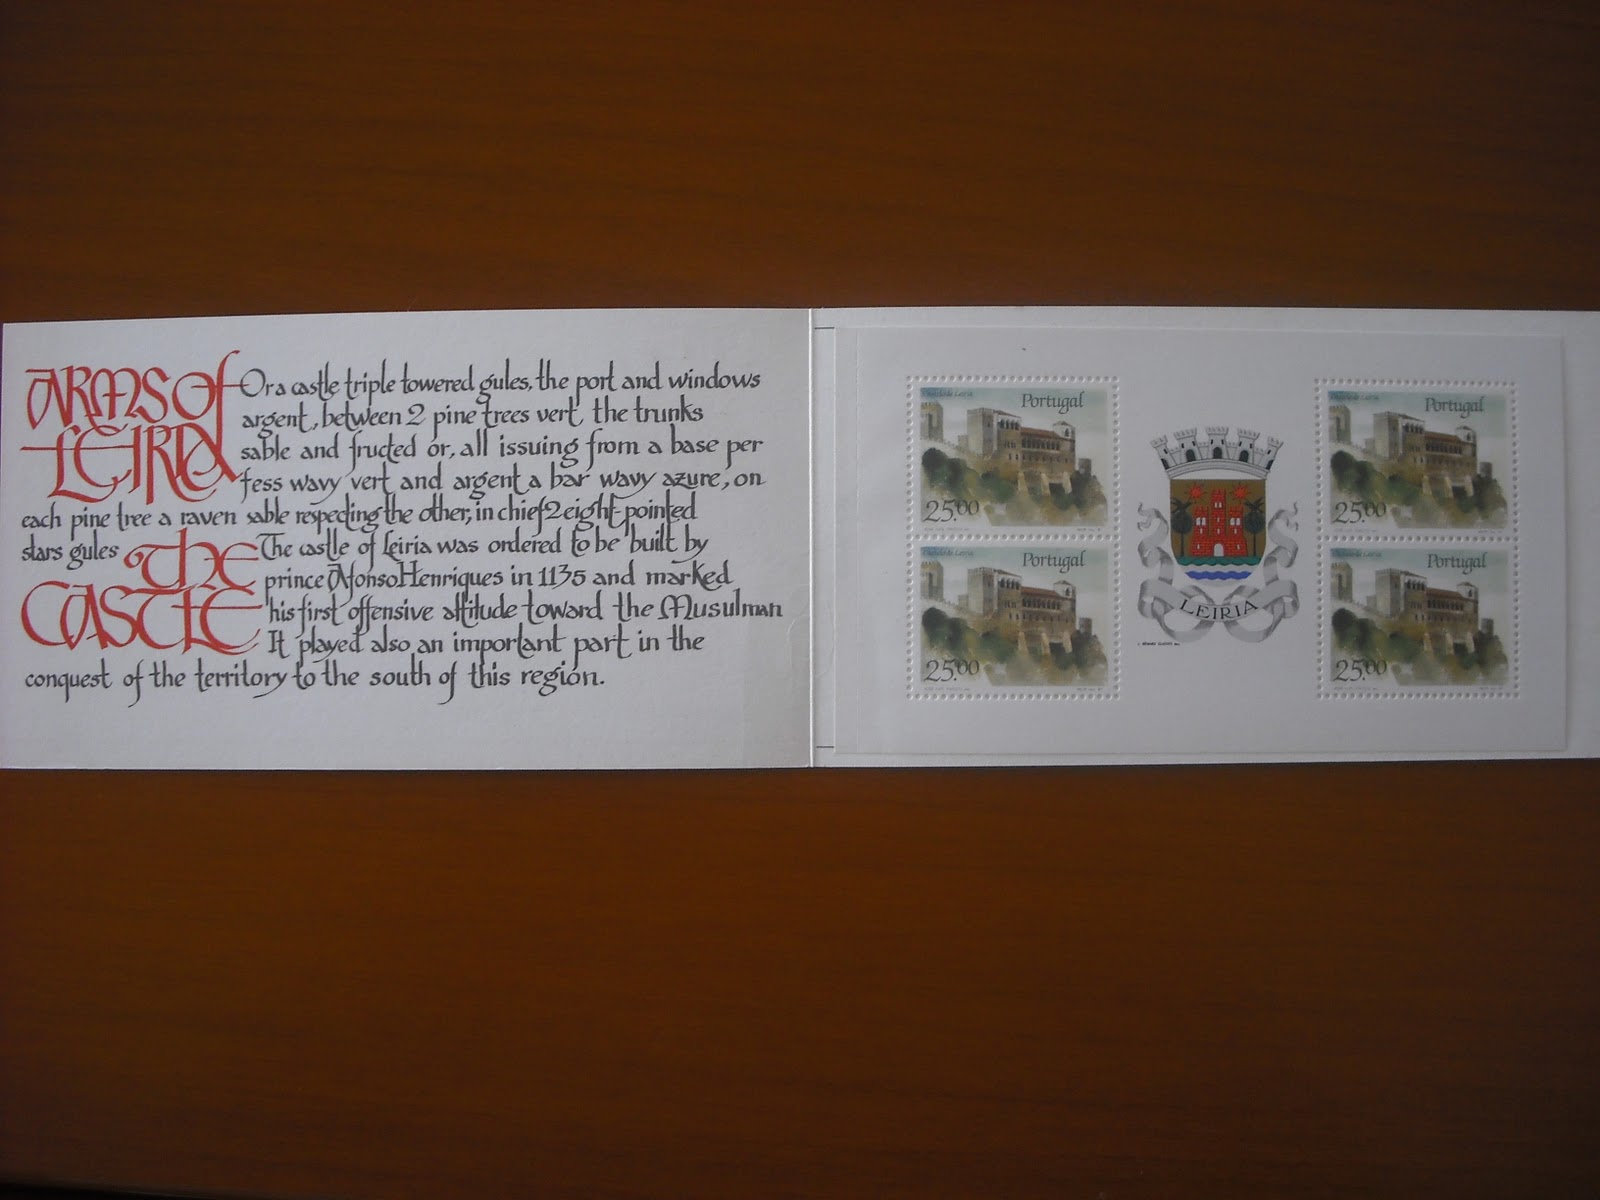 ARMS of
LEIRIA
Or a castle triple towered gules, the port and windows
argent, between 2 pine trees vert, the trunks
sable and fructed or, all issuing from a base per
fess wavy vert and argent a bar wavy azure, on
each pine tree a raven sable respecting the other, in chief 2 eight-pointed
stars gules
The
CASTLE
The castle of Leiria was ordered to be built by
prince Afonso Henriques in 1135 and marked
his first offensive attitude toward the Musulman
It played also an important part in the
conquest of the territory to the south of this region.
Castelo de Leiria
Portugal
25.00
Castelo de Leiria
Portugal
25.00
LEIRIA
Castelo de Leiria
Portugal
25.00
Castelo de Leiria
Portugal
25.00